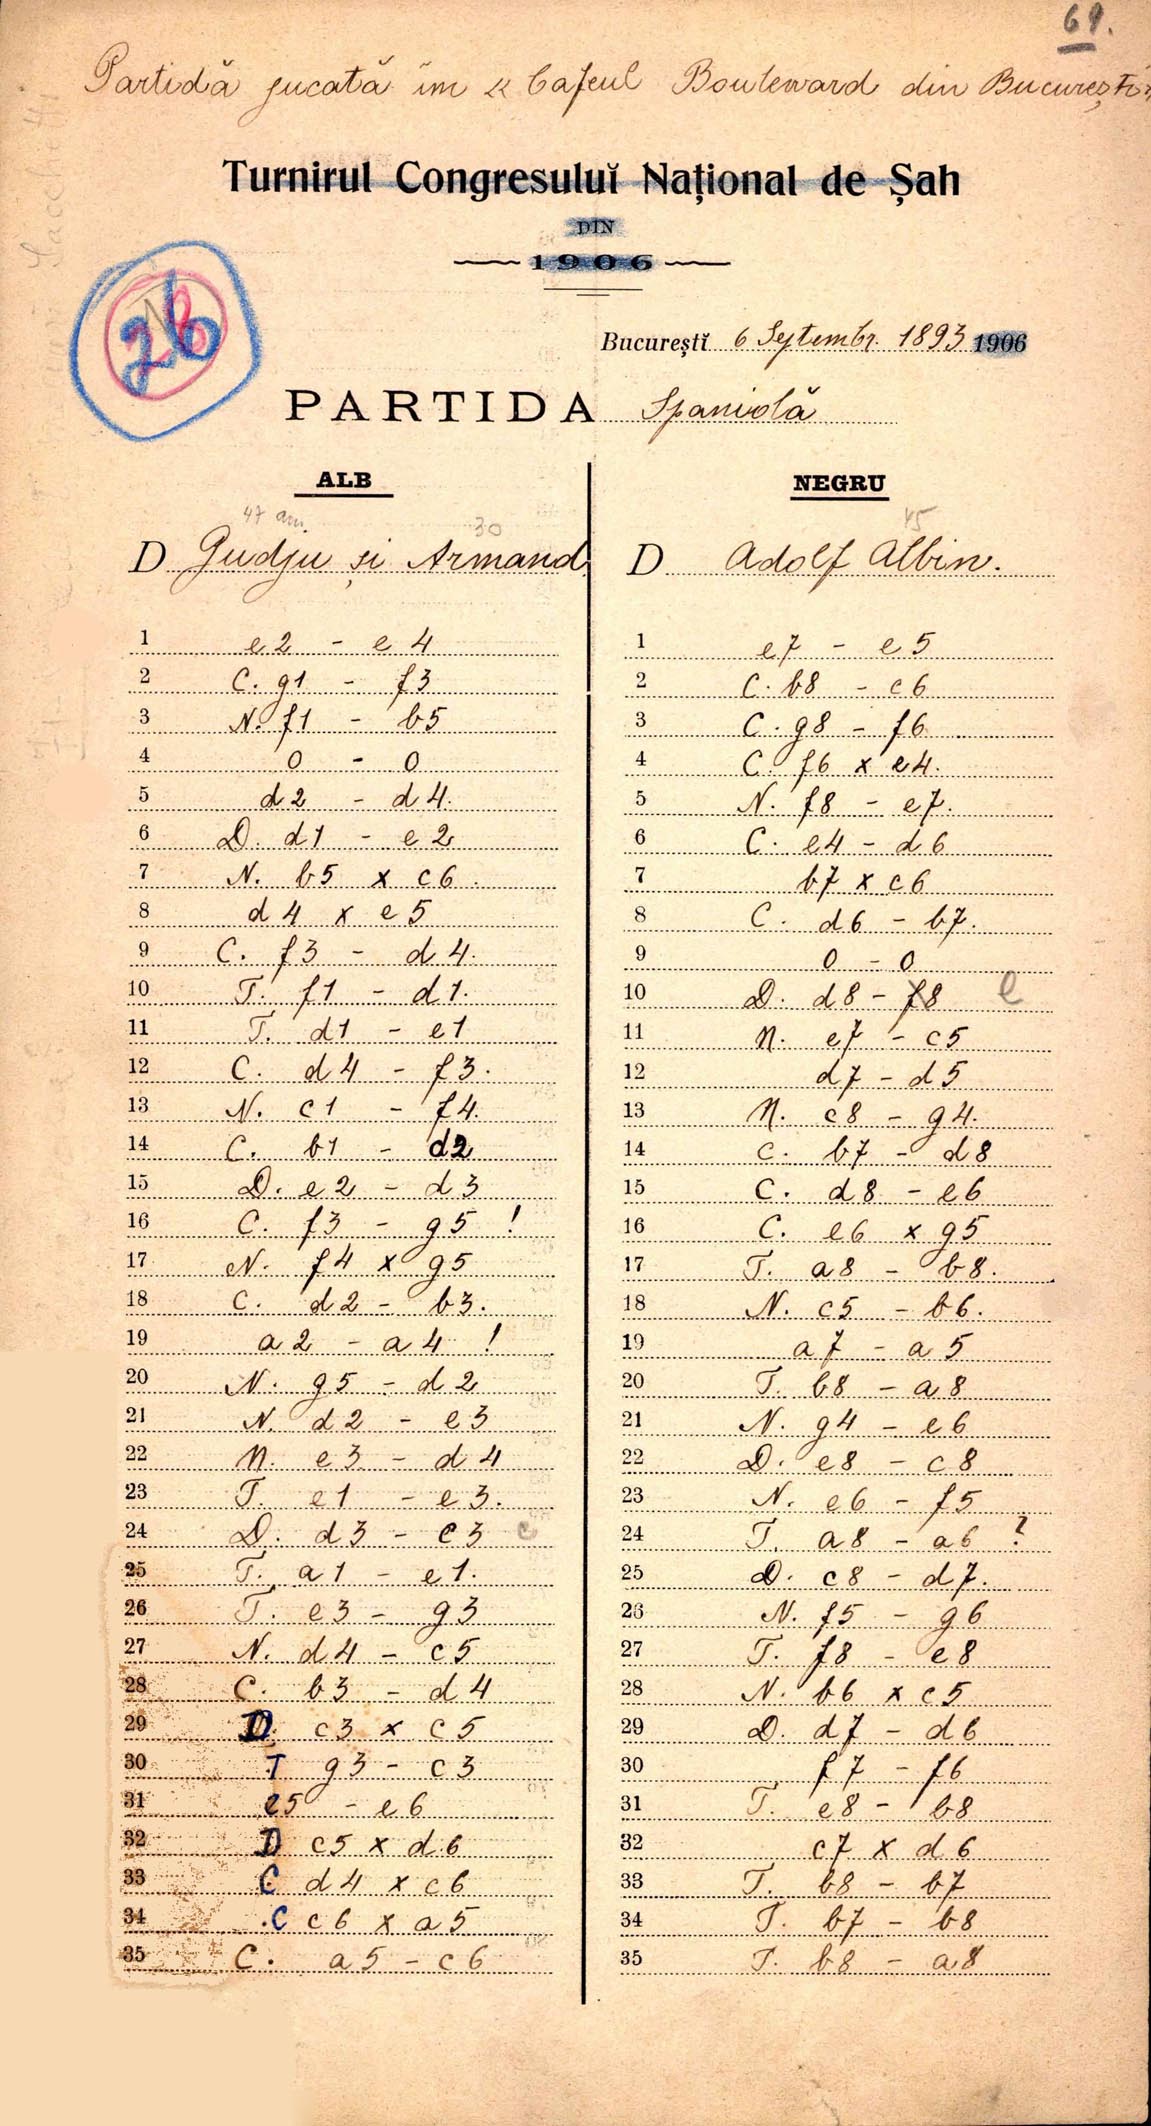 61.
Partidă jucată în Cafeul Boulevard din București
Turnirul Congresuluĭ Național de Șah
DIN
1906
26
Bucureștĭ 6 Septembr. 1893 1906
PARTIDA Spaniolă
ALB NEGRU
47 ani 30 45
D Gudju și Armand D Adolf Albin.
1 e2 - e4 1 e7 - e5
2 C. g1 - f3 2 C. b8 - c6
3 N. f1 - b5 3 C. g8 - f6
4 0 - 0 4 C. f6 x e4.
5 d2 - d4. 5 N. f8 - e7.
6 D. d1 - e2 6 C. e4 - d6
7 N. b5 x c6. 7 b7 x c6
8 d4 x e5 8 C. d6 - b7.
9 C. f3 - d4. 9 0 - 0
10 T. f1 - d1. 10 D. d8 - f8 e
11 T. d1 - e1 11 N. e7 - c5
12 C. d4 - f3. 12 d7 - d5
13 N. c1 - f4. 13 N. c8 - g4.
14 C. b1 - d2 14 C. b7 - d8
15 D. e2 - d3 15 C. d8 - e6
16 C. f3 - g5 ! 16 C. e6 x g5
17 N. f4 x g5 17 T. a8 - b8.
18 C. d2 - b3. 18 N. c5 - b6.
19 a2 - a4 ! 19 a7 - a5
20 N. g5 - d2 20 T. b8 - a8
21 N. d2 - e3 21 N. g4 - e6
22 N. e3 - d4 22 D. e8 - c8
23 T. e1 - e3. 23 N. e6 - f5
24 D. d3 - c3 c 24 T. a8 - a6 ?
25 T. a1 - e1. 25 D. c8 - d7.
26 T. e3 - g3 26 N. f5 - g6
27 N. d4 - c5 27 T. f8 - e8
28 C. b3 - d4 28 N. b6 x c5
29 D. c3 x c5 29 D. d7 - d6
30 T g3 - c3 30 f7 - f6
31 e5 - e6 31 T. e8 - b8
32 D c5 x d6 32 c7 x d6
33 C d4 x c6 33 T. b8 - b7
34 .C c6 x a5 34 T. b7 - b8
35 C. a5 - c6 35 T. b8 - a8